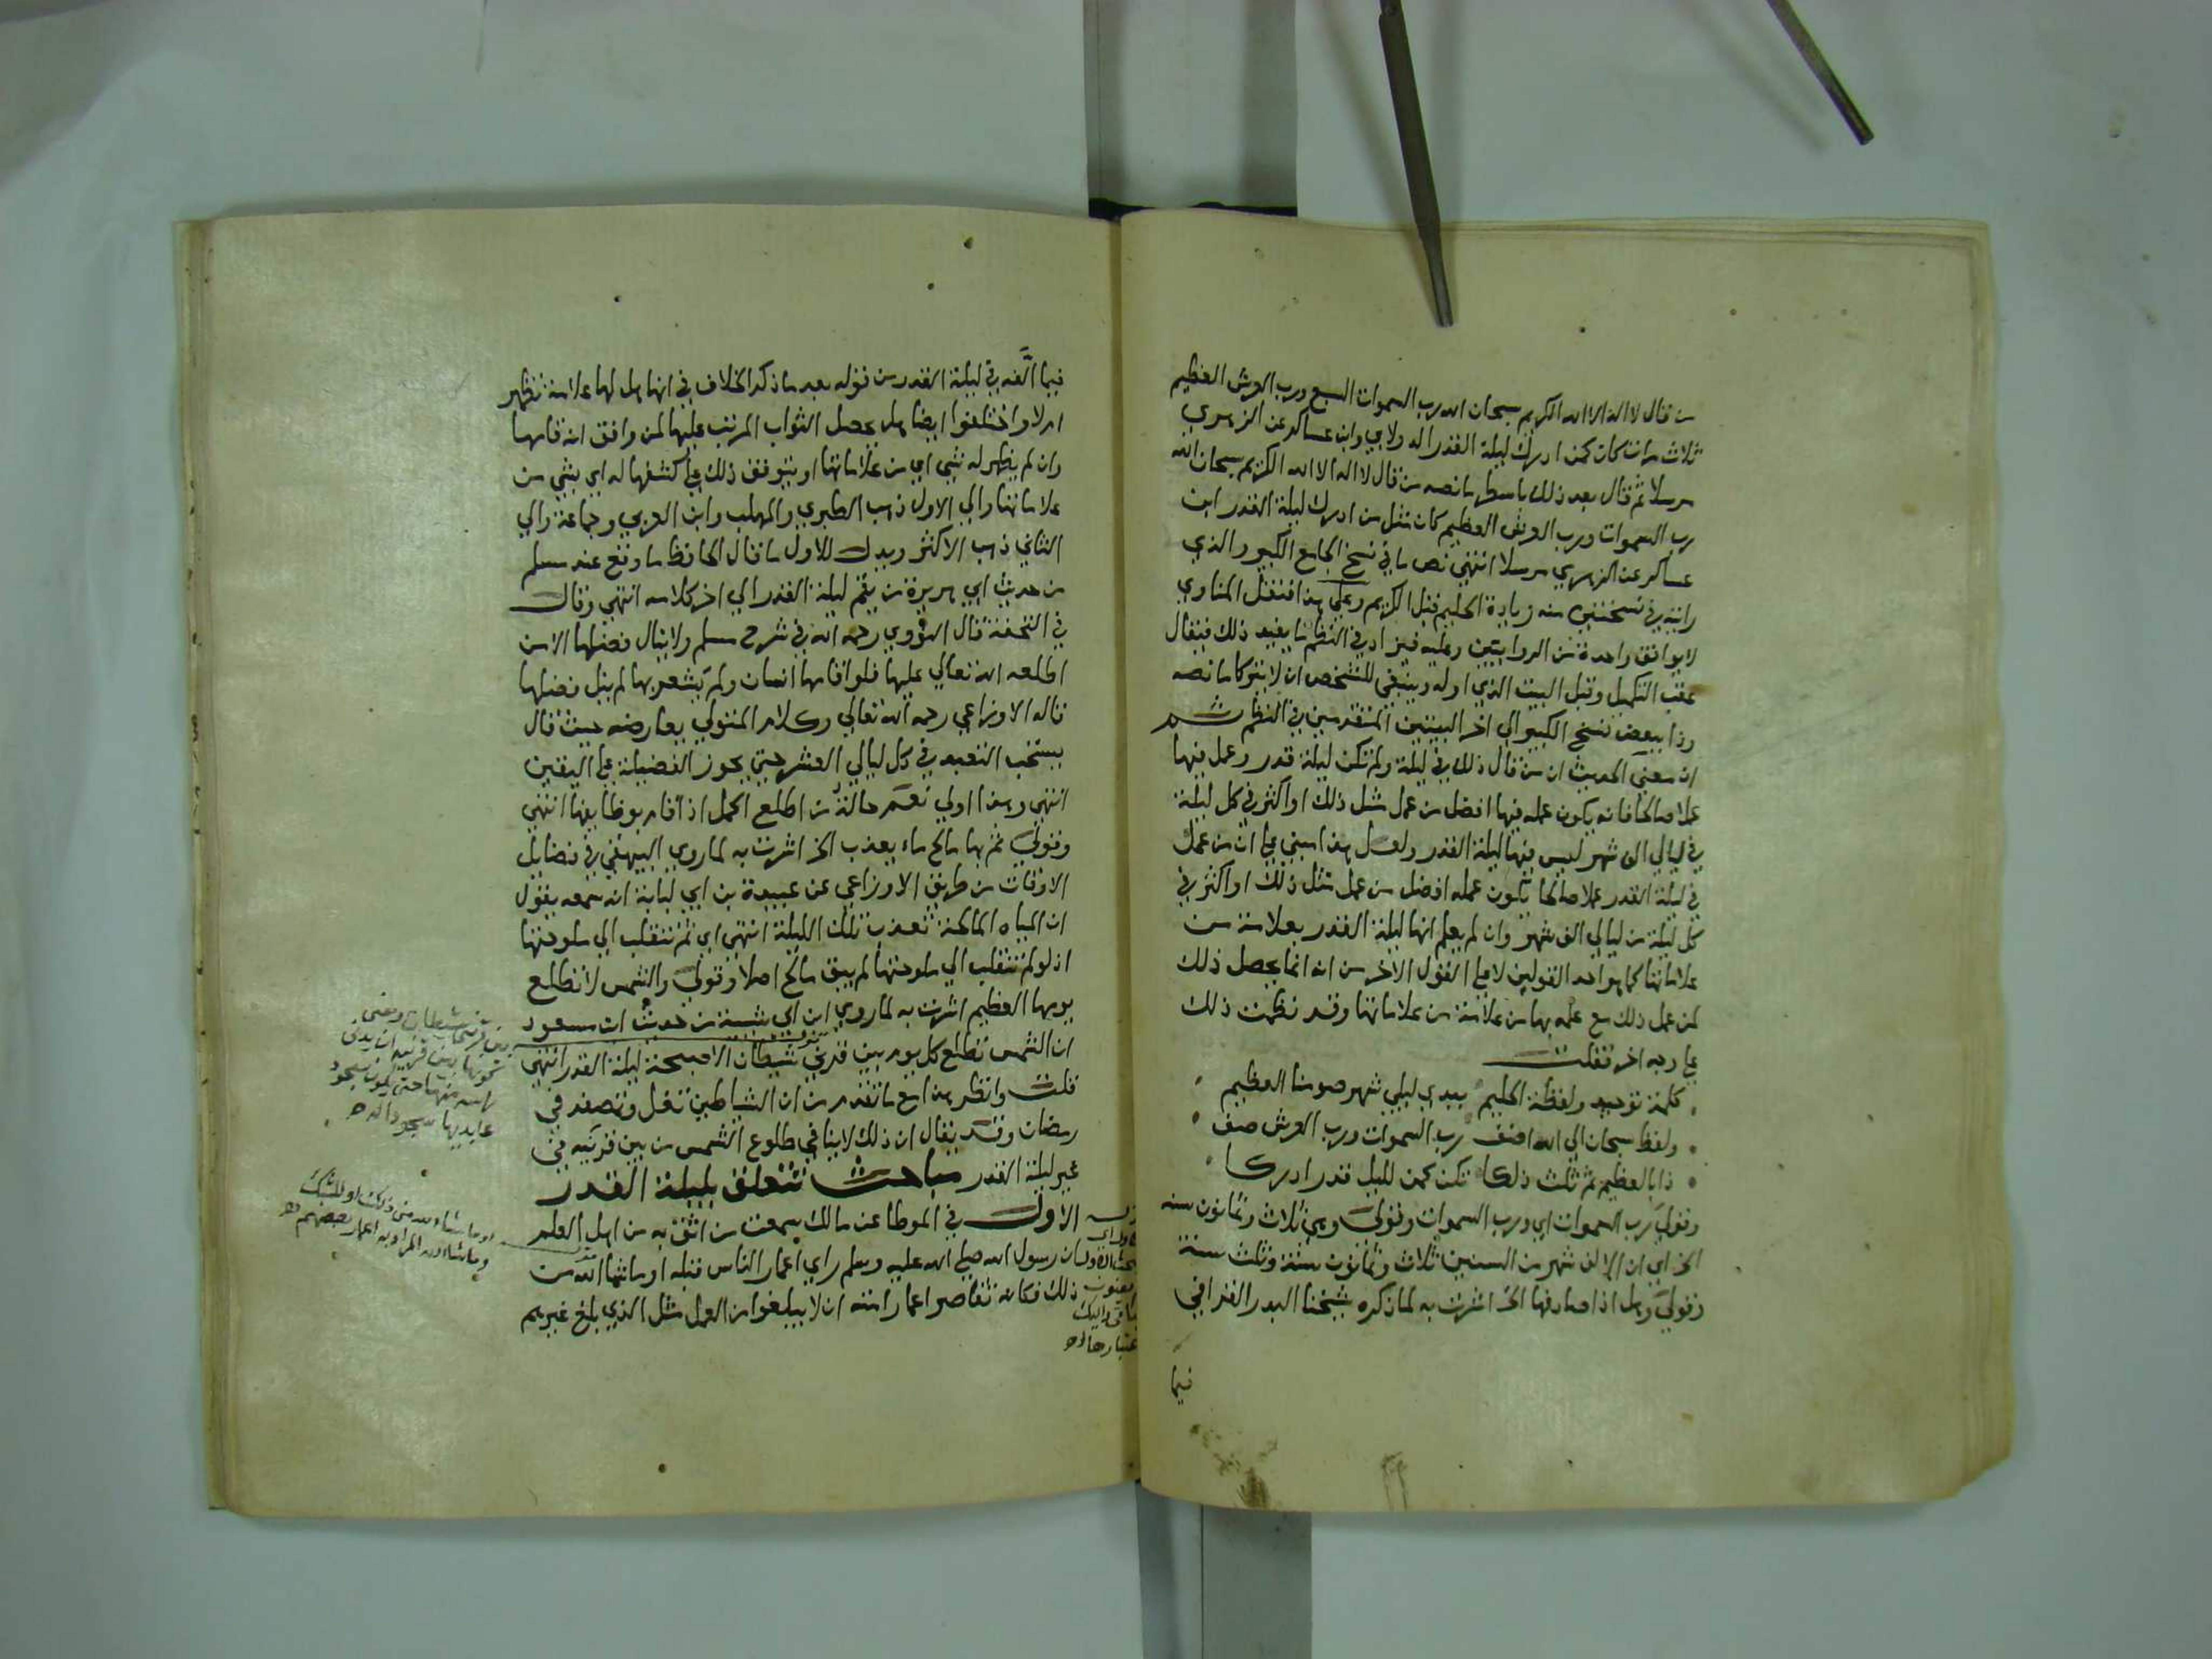 من قال لا اله الا الله الكريم سبحان الله رب السموات السبع ورب العرش العظيم
ثلاث مرات كان كمن ادرك ليلة القدر الدولابي وابن عساكر عن الزهري
مرسلا ثم قال بعد ذلك باسطر ما نصه من قال لا اله الا الله الكريم سبحان الله
رب السموات ورب العرش العظيم كان مثل من ادرك ليلة القدر ابن
عساكر عن الزهري مرسلا انتهى نص ما في نسخ الجامع الكبير والذي
رايته في نسختين منه زيادة الحليم قبل الكريم وعلى هذا فنقل المناوي
لا يوافق واحدة من الروايتين وعليه فيزاد في النظم ما يفيد ذلك فيقال
عقب التكميل وقبل البيت الذي اوله وينبغي للشخص ان لا يتركا ما نصه
وذا ببعض نسخ الكبير الى اخر البيتين المتقدمين في النظم ثم
ان معنى الحديث ان من قال ذلك في ليلة ولم تكن ليلة قدر وعمل فيها
عملا صالحا فانه يكون عمله فيها افضل من عمل مثل ذلك او اكثر في كل ليلة
في ليالي الف شهر ليس فيها ليلة القدر ولعل هذا مبني على ان من عمل
في ليلة القدر عملا صالحا يكون عمله افضل من عمل مثل ذلك او اكثر في
كل ليلة من ليالي الف شهر وان لم يعلم انها ليلة القدر بعلامة من
علاماتها كما هو احد القولين لا على القول الاخر من انه انما يحصل ذلك
لمن عمل ذلك مع علمه بها من علامة من علاماتها وقد نظمت ذلك
على وجه اخر فقلت
كلمة توحيد ولفظة الحليم بعدي ليلي شهر صومنا العظيم
ولفظ سبحان الى الله اضف رب السموات ورب العرش صف
ذا بالعظيم ثم ثلث ذلكا تكن كمن لليل قدر ادركا
وقولي رب السموات اي ورب السموات وقولي وهي ثلاث وثمانون سنه
الخ اي ان الالف شهر من السنين ثلاث وثمانون سنة وثلث سنة
وقولي وهل اذا صادفها الخ اشرت به لما ذكره شيخنا البدر القرافي
فيما
فيما الفه في ليلة القدر من قوله بعد ما ذكر الخلاف في انها هل لها علامة تظهر
ام لا واختلفوا ايضا هل يحصل الثواب المرتب عليها لمن وافق انه قامها
وان لم يظهر له شي اي من علاماتها او يتوقف ذلك على كشفها له اي بشي من
علاماتها والى الاول ذهب الطبري والمهلب وابن العربي وجماعة والى
الثاني ذهب الاكثر ويدل للاول ما قال الحافظ ما وقع عند مسلم
من حديث ابي هريرة من يقم ليلة القدر الى اخر كلامه انتهى وقال
في التحفة قال النووي رحمه الله في شرح مسلم ولا ينال فضلها الا من
اطلعه الله تعالى عليها فلو قامها انسان ولم يشعر بها لم ينل فضلها
قاله الاوزاعي رحمه الله تعالى وكلام المتولي يعارضه حيث قال
يستحب التعبد في كل ليالي العشر حتى يحوز الفضيلة على اليقين
انتهى وهذا اولى نعم حالة من اطلع اكمل اذا قام بوظايفها انتهى
وقولي ثم بها مالح ماء يعذب الخ اشرت به لما روى البيهقي في فضايل
الاوقات من طريق الاوزاعي عن عبيدة بن ابي لبابة انه سمعه يقول
ان المياه المالحة تعذب تلك الليلة انتهى اي ثم تنقلب الى ملوحتها
اذ لو لم تنقلب الى ملوحتها لم يبق مالح اصلا وقولي والشمس لا تطلع
يومها العظيم اشرت به لما روى ابن ابي شيبة من حديث ابن مسعود
ان الشمس تطلع كل يوم بين قرني شيطان الا صبيحة ليلة القدر انتهى
قلت وانظر هذا مع ما تقدم من ان الشياطين تغل وتصفد في
رمضان وقد يقال ان ذلك لا ينافي طلوع الشمس من بين قرنيه في
غير ليلة القدر مباحث تتعلق بليلة القدر
الاول في الموطا عن مالك سمعت من اثق به من اهل العلم
ان رسول الله صلى الله عليه وسلم راى اعمار الناس قبله او ما شاء الله من
ذلك فكانه تقاصر اعمار امته ان لا يبلغوا من العمل مثل الذي بلغ غيرهم
بين قرني شيطان ومعنى
كونها بين قرنيه ان يدني
راسه منها حتى يكون سجود
عابديها سجودا له
او ما شاء الله من ذلك او للشك
وما شاء الله المراد به اعمار بعضهم